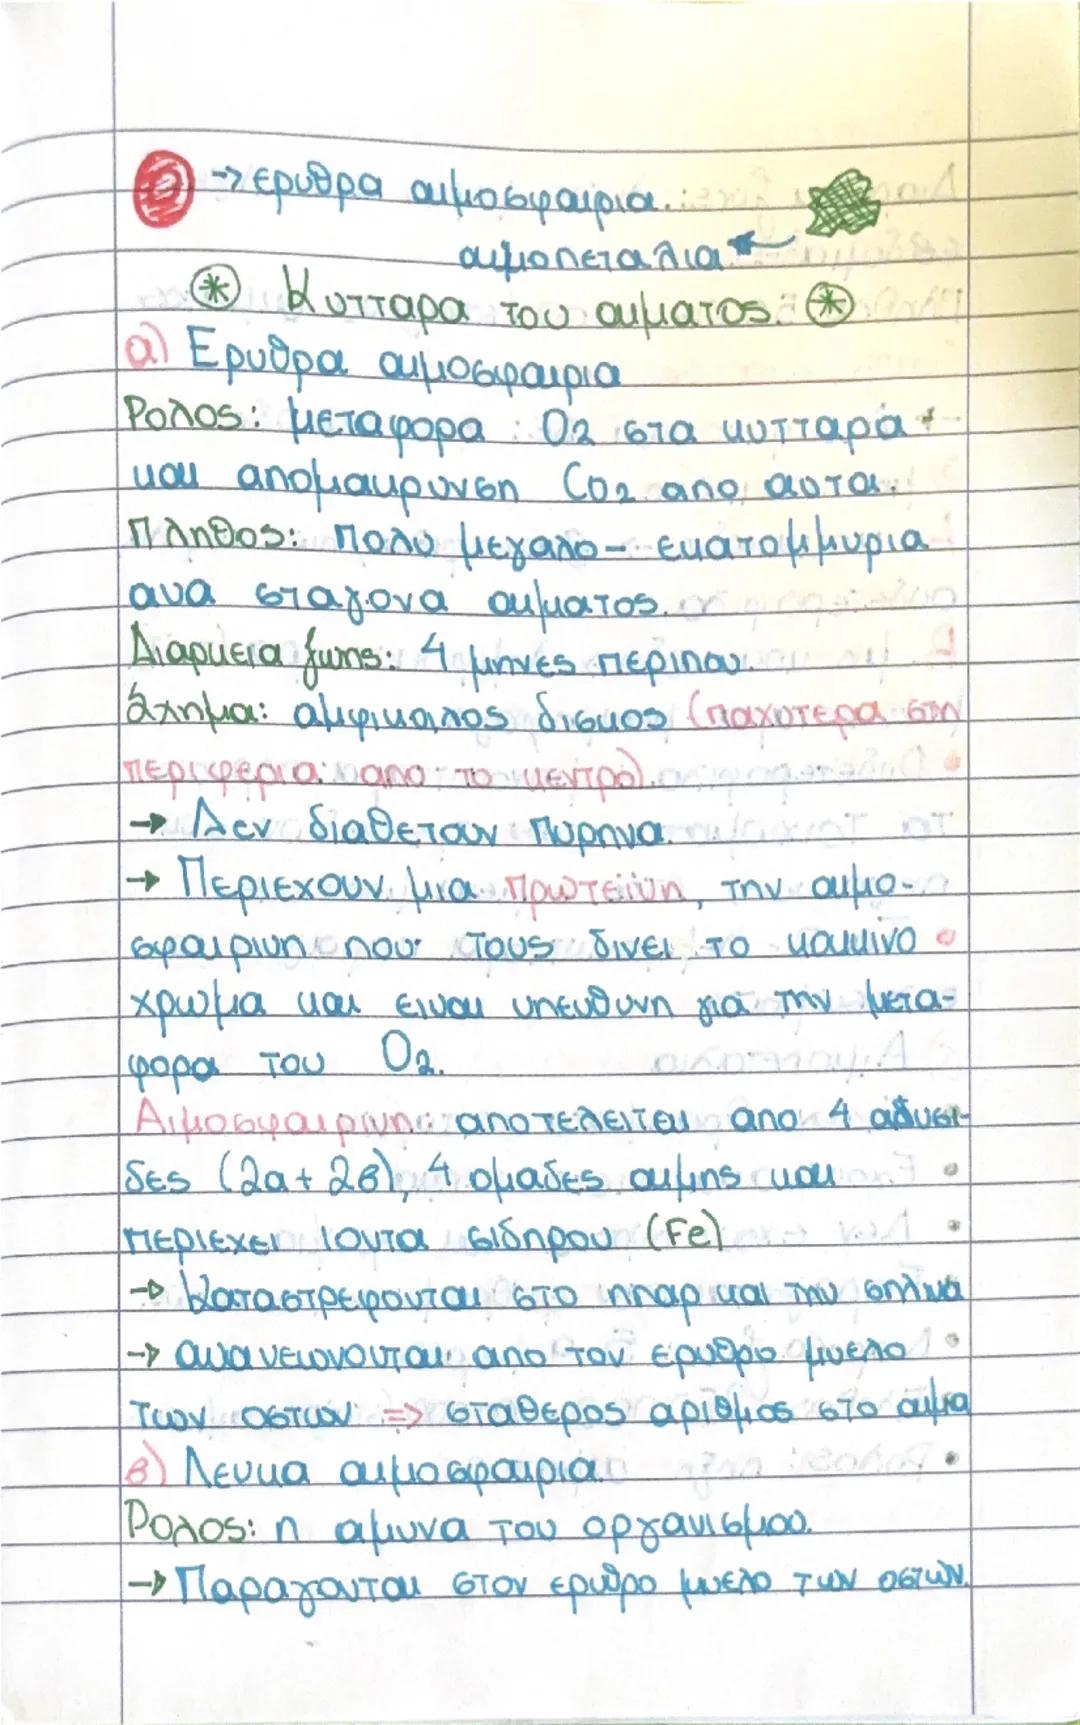 → ερυθρα αιμοσφαιρια
αιμοπεταλια ←
⊛ Κυτταρα του αιματος ⊛
α) Ερυθρα αιμοσφαιρια
Ρολος: μεταφορα O2 στα κυτταρα
και απομακρυνση CO2 απο αυτα.
Πληθος: Πολυ μεγαλο- εκατομμυρια
ανα σταγονα αιματος.
Διαρκεια ζωης: 4 μηνες περιπου.
Σχημα: αμφικοιλος δισκος (παχυτερα στη
περιφερια απο το κεντρο).
→ Δεν διαθετουν πυρηνα.
→ Περιεχουν μια πρωτεϊνη, την αιμο-
σφαιρινη που τους δινει το κοκκινο
χρωμα και ειναι υπευθυνη για την μετα-
φορα του O2.
Αιμοσφαιρινη: αποτελειται απο 4 αλυσι-
δες (2α+2β), 4 ομαδες αιμης και
περιεχει ιοντα σιδηρου (Fe)
→ Καταστρεφονται στο ηπαρ και την σπληνα
→ ανανεωνονται απο τον ερυθρο μυελο
των οστων => σταθερος αριθμος στο αιμα
β) Λευκα αιμοσφαιρια.
Ρολος: η αμυνα του οργανισμου.
→ Παραγονται στον ερυθρο μυελο των οστων.